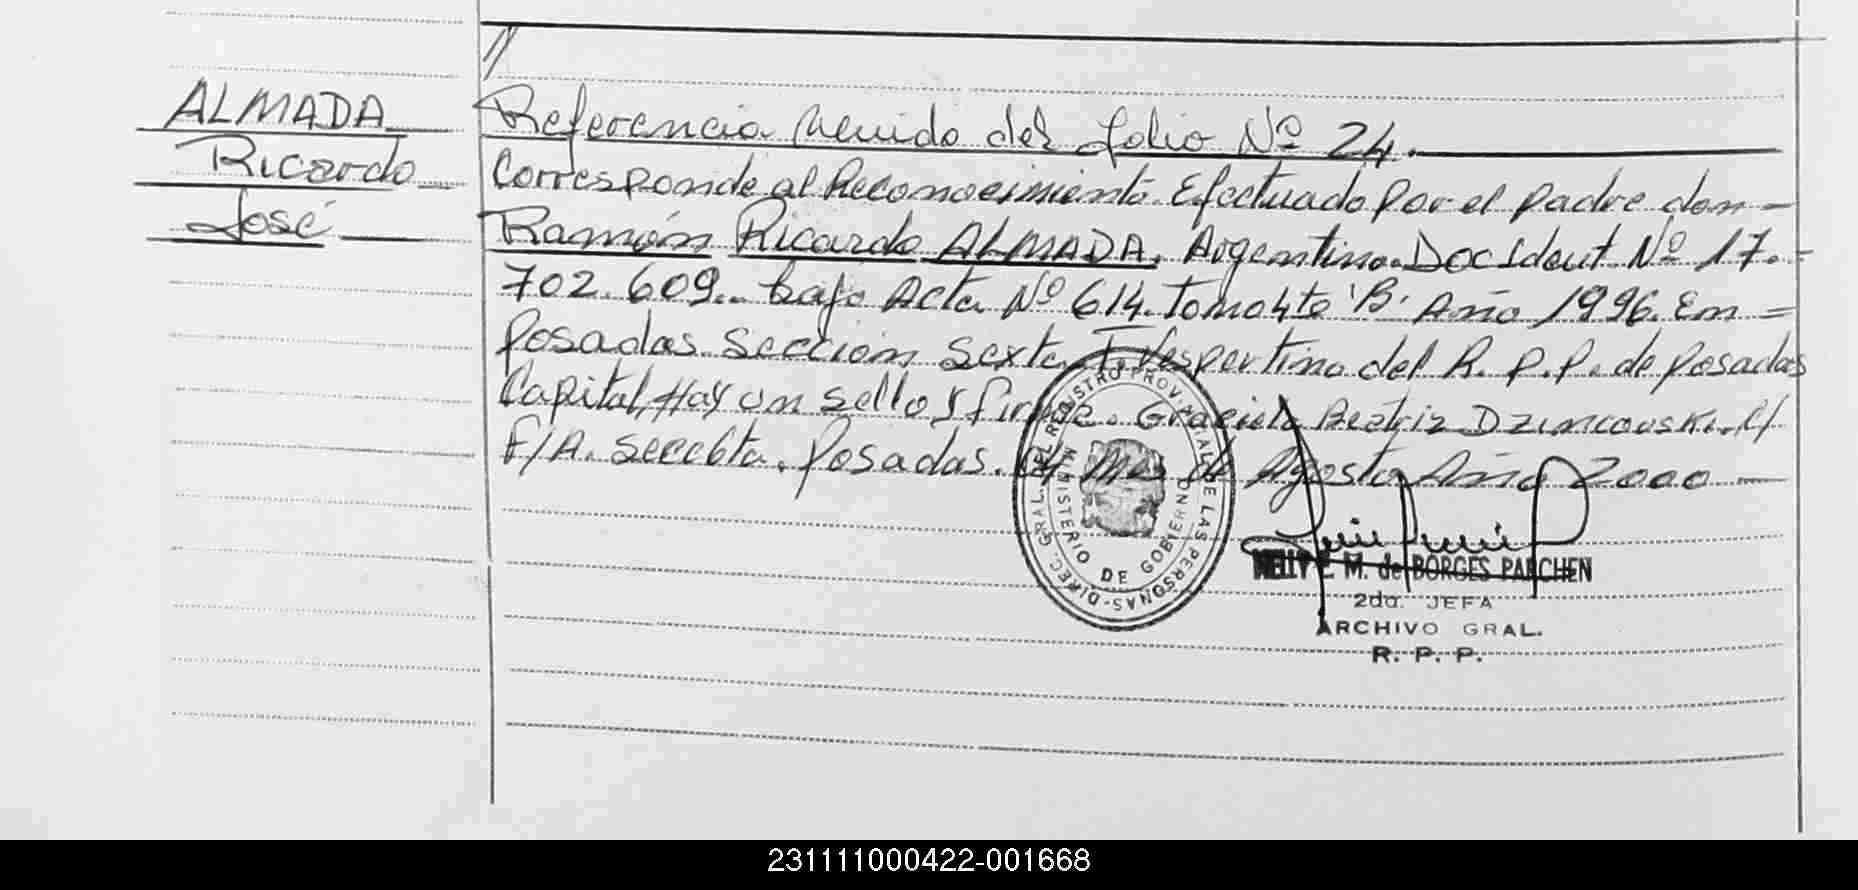 ALMADA
Ricardo
José
//
Referencia Venida del folio Nº 24.
Corresponde al Reconocimiento Efectuado por el padre don =
Ramón Ricardo ALMADA. Argentino. Doc Ident Nº 17.-
702.609.. bajo Acta Nº 614. Tomo 4to "B" Año 1996. En =
Posadas Sección Sexta I Vespertina del R. P. P. de Posadas
Capital, Hay un sello y firma. Graciela Beatriz Dzincouski.
F/A. Secc 6ta. Posadas. 04 Mes de Agosto Año 2000 —
DIREC. GRAL. DEL REGISTRO PROVINCIAL DE LAS PERSONAS
MINISTERIO DE GOBIERNO
NELLY E. M. de BORGES PARCHEN
2da. JEFA
ARCHIVO GRAL.
R. P. P.
231111000422-001668